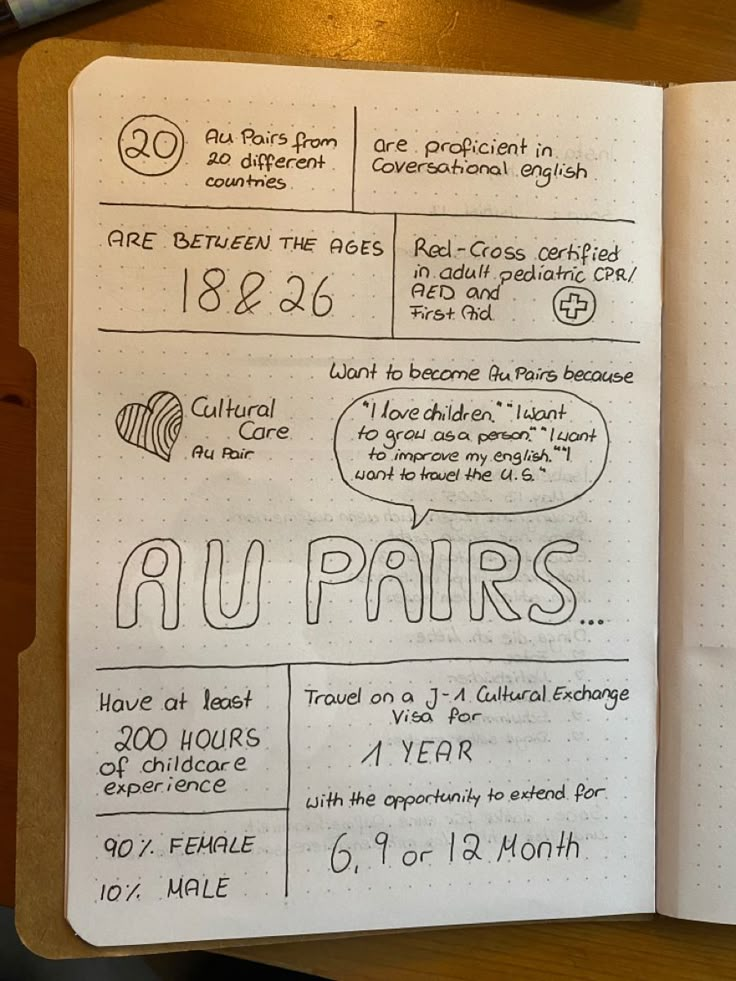 20
Au Pairs from
20 different
countries
are proficient in
Coversational english
ARE BETWEEN THE AGES
18 & 26
Red-Cross certified
in adult pediatric CPR/
AED and
First Aid
Want to become Au Pairs because
Cultural
Care
Au Pair
"I love children." "I want
to grow as a person." "I want
to improve my english." "I
want to travel the U.S."
AU PAIRS...
Have at least
200 HOURS
of childcare
experience
90% FEMALE
10% MALE
Travel on a J-1 Cultural Exchange
Visa for
1 YEAR
with the opportunity to extend for
6, 9 or 12 Month